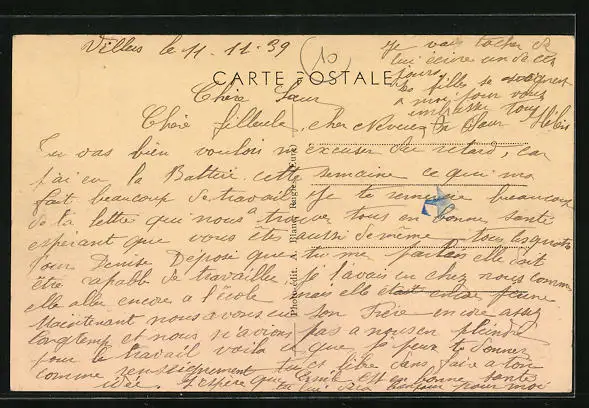 Villers le 11. 11. 39
Je vais tacher de
lui écrire un de ces
jours.
Les filles se joignent
a moi pour vous
embrasser tous
CARTE POSTALE
Chère Sœur
Chère filleule, cher Neveu
Tu vas bien vouloir m excuser du retard, car
j'ai eu la Batterie cette semaine ce qui ma
fait beaucoup de travail. Je te remercie beaucoup
de ta lettre qui nous a trouver tous en bonne santé
espérant que vous êtes aussi de même tous les quatre
pour Denise Deposé que tu me parlais elle doit
être capable de travailler je l'avais eu chez nous comme
elle aller encore a l'école mais elle était encore jeune.
Maintenant nous avons eu son Frère encore assez
longtemp et nous n'avions pas a nous en plaindre
pour le travail voila ce que je peux te donner
comme renseignement tu es libre dans faire a ton
idée. J'espère que Emile est en bonne santé
tu lui dira bonjour pour moi
Photo-édit.